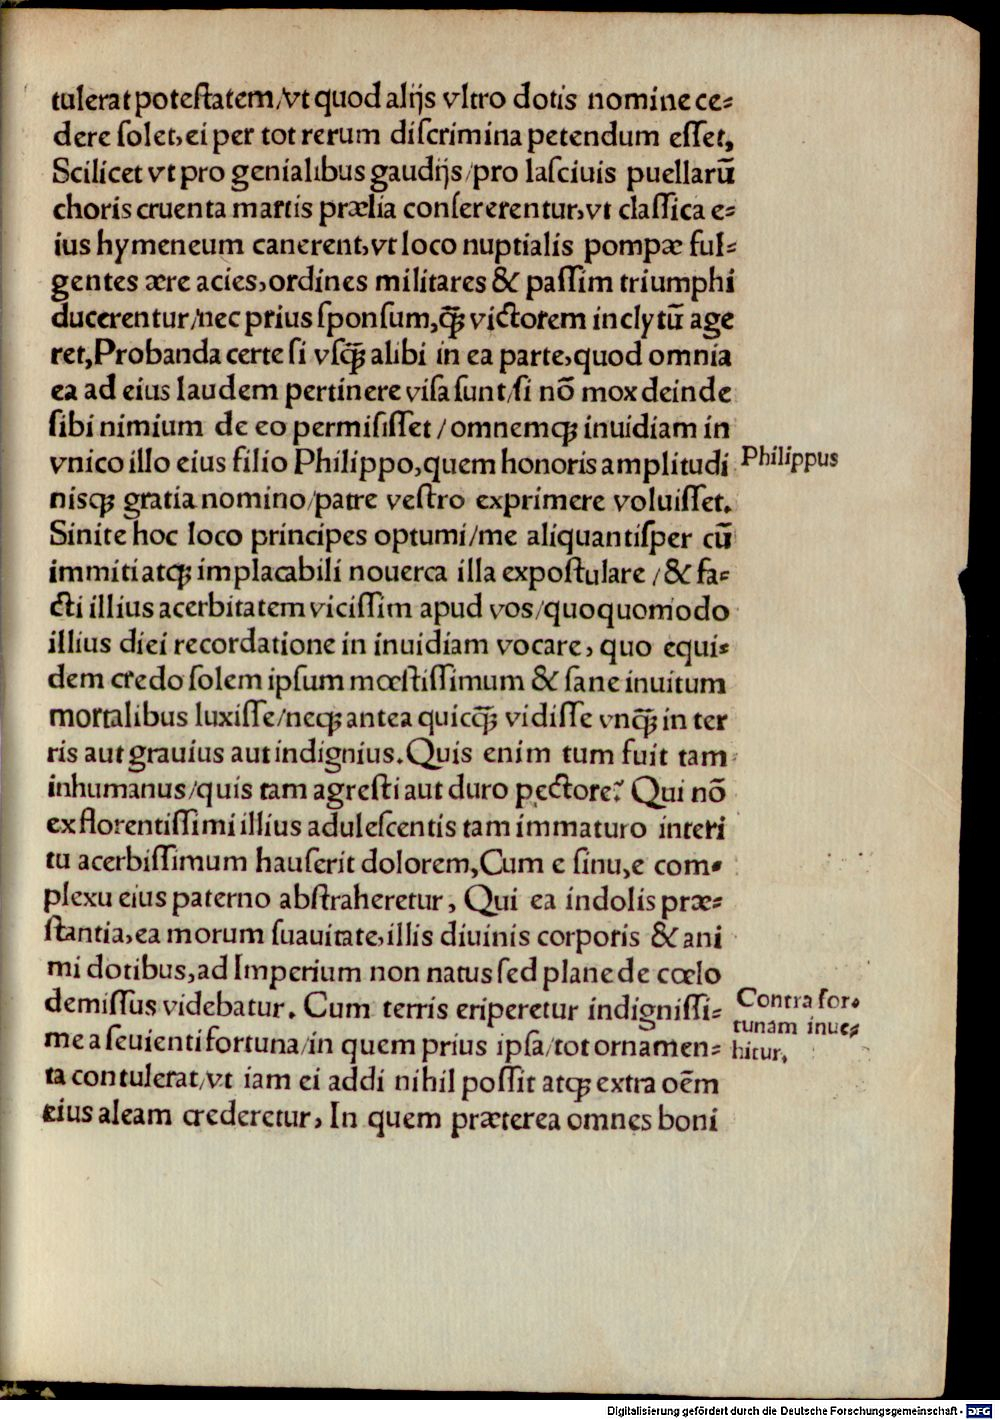 tulerat potestatem/vt quod alijs vltro dotis nomine ce⸗
dere solet, ei per tot rerum discrimina petendum esset,
Scilicet vt pro genialibus gaudijs/pro lasciuis puellarū
choris cruenta martis prælia consererentur, vt classica e⸗
ius hymeneum canerent, vt loco nuptialis pompæ ful⸗
gentes ære acies, ordines militares & passim triumphi
ducerentur/nec prius sponsum, q̄ꝫ victorem inclytū age
ret, Probanda certe si vsq̄ꝫ alibi in ea parte, quod omnia
ea ad eius laudem pertinere visa sunt/si nō mox deinde
sibi nimium de eo permisisset/omnemqꝫ inuidiam in
vnico illo eius filio Philippo, quem honoris amplitudi
nisqꝫ gratia nomino/patre vestro exprimere voluisset.
Sinite hoc loco principes optumi/me aliquantisper cū
immiti atqꝫ implacabili nouerca illa expostulare/& fa⸗
cti illius acerbitatem vicissim apud vos/quoquomodo
illius diei recordatione in inuidiam vocare, quo equi⸗
dem credo solem ipsum mœstissimum & sane inuitum
mortalibus luxisse/neqꝫ antea quicq̄ꝫ vidisse vnq̄ꝫ in ter
ris aut grauius aut indignius. Quis enim tum fuit tam
inhumanus/quis tam agresti aut duro pectore? Qui nō
ex florentissimi illius adulescentis tam immaturo interi
tu acerbissimum hauserit dolorem, Cum e sinu, e com⸗
plexu eius paterno abstraheretur, Qui ea indolis præ⸗
stantia, ea morum suauitate, illis diuinis corporis & ani
mi dotibus, ad Imperium non natus sed plane de cœlo
demissus videbatur. Cum terris eriperetur indignissi⸗
me a seuienti fortuna/in quem prius ipsa/tot ornamen⸗
ta contulerat/vt iam ei addi nihil possit atqꝫ extra oēm
eius aleam crederetur, In quem præterea omnes boni
Philippus
Contra for⸗
tunam inue⸗
hitur.
Digitalisierung gefördert durch die Deutsche Forschungsgemeinschaft - DFG